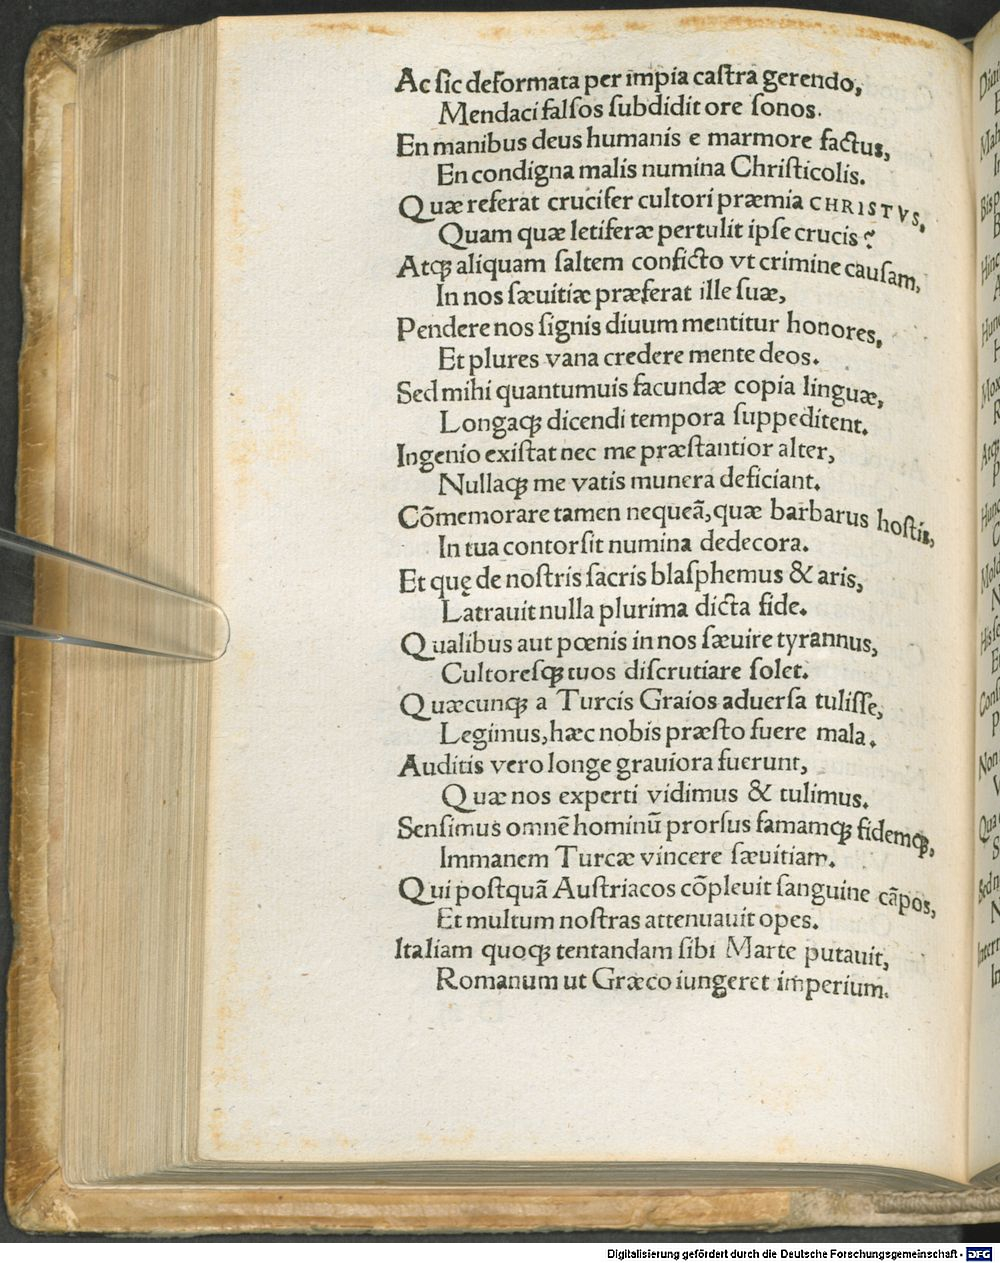 Ac sic deformata per impia castra gerendo,
Mendaci falsos subdidit ore sonos.
En manibus deus humanis e marmore factus,
En condigna malis numina Christicolis.
Quæ referat crucifer cultori præmia CHRISTVS,
Quam quæ letiferæ pertulit ipse crucis?
Atq; aliquam saltem conficto vt crimine causam,
In nos sæuitiæ præferat ille suæ,
Pendere nos signis diuum mentitur honores,
Et plures vana credere mente deos.
Sed mihi quantumuis facundæ copia linguæ,
Longaq; dicendi tempora suppeditent.
Ingenio existat nec me præstantior alter,
Nullaq; me vatis munera deficiant.
Cõmemorare tamen nequeã, quæ barbarus hostis,
In tua contorsit numina dedecora.
Et quę de nostris sacris blasphemus & aris,
Latrauit nulla plurima dicta fide.
Qualibus aut pœnis in nos sæuire tyrannus,
Cultoresq; tuos discrutiare solet.
Quæcunq; a Turcis Graios aduersa tulisse,
Legimus, hæc nobis præsto fuere mala.
Auditis vero longe grauiora fuerunt,
Quæ nos experti vidimus & tulimus.
Sensimus omnẽ hominũ prorsus famamq; fidemq;,
Immanem Turcæ vincere sæuitiam.
Qui postquã Austriacos cõpleuit sanguine cãpos,
Et multum nostras attenuauit opes.
Italiam quoq; tentandam sibi Marte putauit,
Romanum ut Græco iungeret imperium.
Digitalisierung gefördert durch die Deutsche Forschungsgemeinschaft - DFG